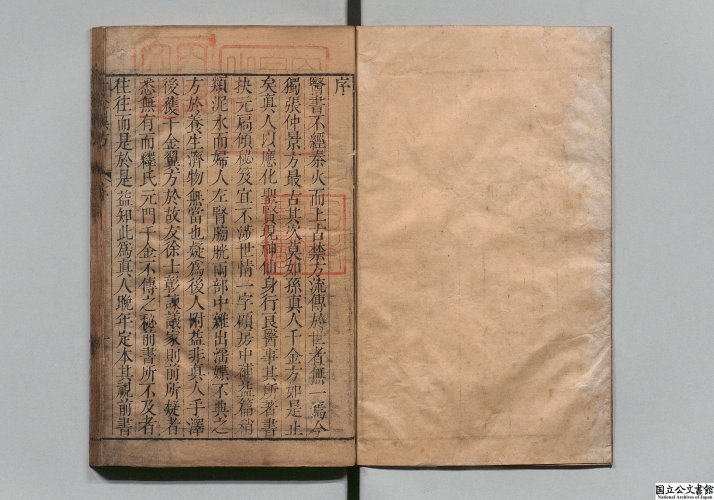 序
醫書不經秦火而上古禁方流傳於世者無一為今
獨張仲景方最古其次莫如孫真人千金方如是止
矣真人以應化聖賢現神仙身行良醫事其所著書
抉元扃傾秘笈宜不滯世情一字顧房中補益篇稍
類泥水而婦人左腎膀胱兩部中雜出淫媟不典之
方於養生濟物無當也疑為後人附益非真人手澤
後獲千金翼方於故友徐士彰諫議家則前所疑者
悉無有而釋氏元門千金不傳之秘前書所不及者
往往而是於是益知此為真人晚年定本其視前書
国立公文書館
National Archives of Japan